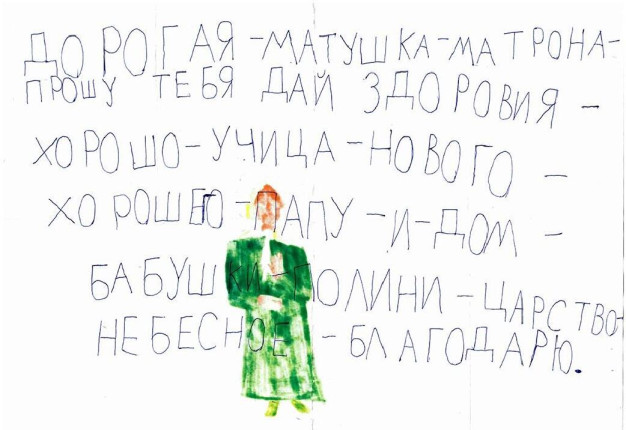 ДОРОГАЯ-МАТУШКА-МАТРОНА-
ПРОШУ ТЕБЯ ДАЙ ЗДОРОВИЯ-
ХОРОШО-УЧИЦА-НОВОГО-
ХОРОШЕГО-ПАПУ-И-ДОМ-
БАБУШКИ-ПОЛИНИ-ЦАРСТВО-
НЕБЕСНОЕ-БЛАГОДАРЮ.